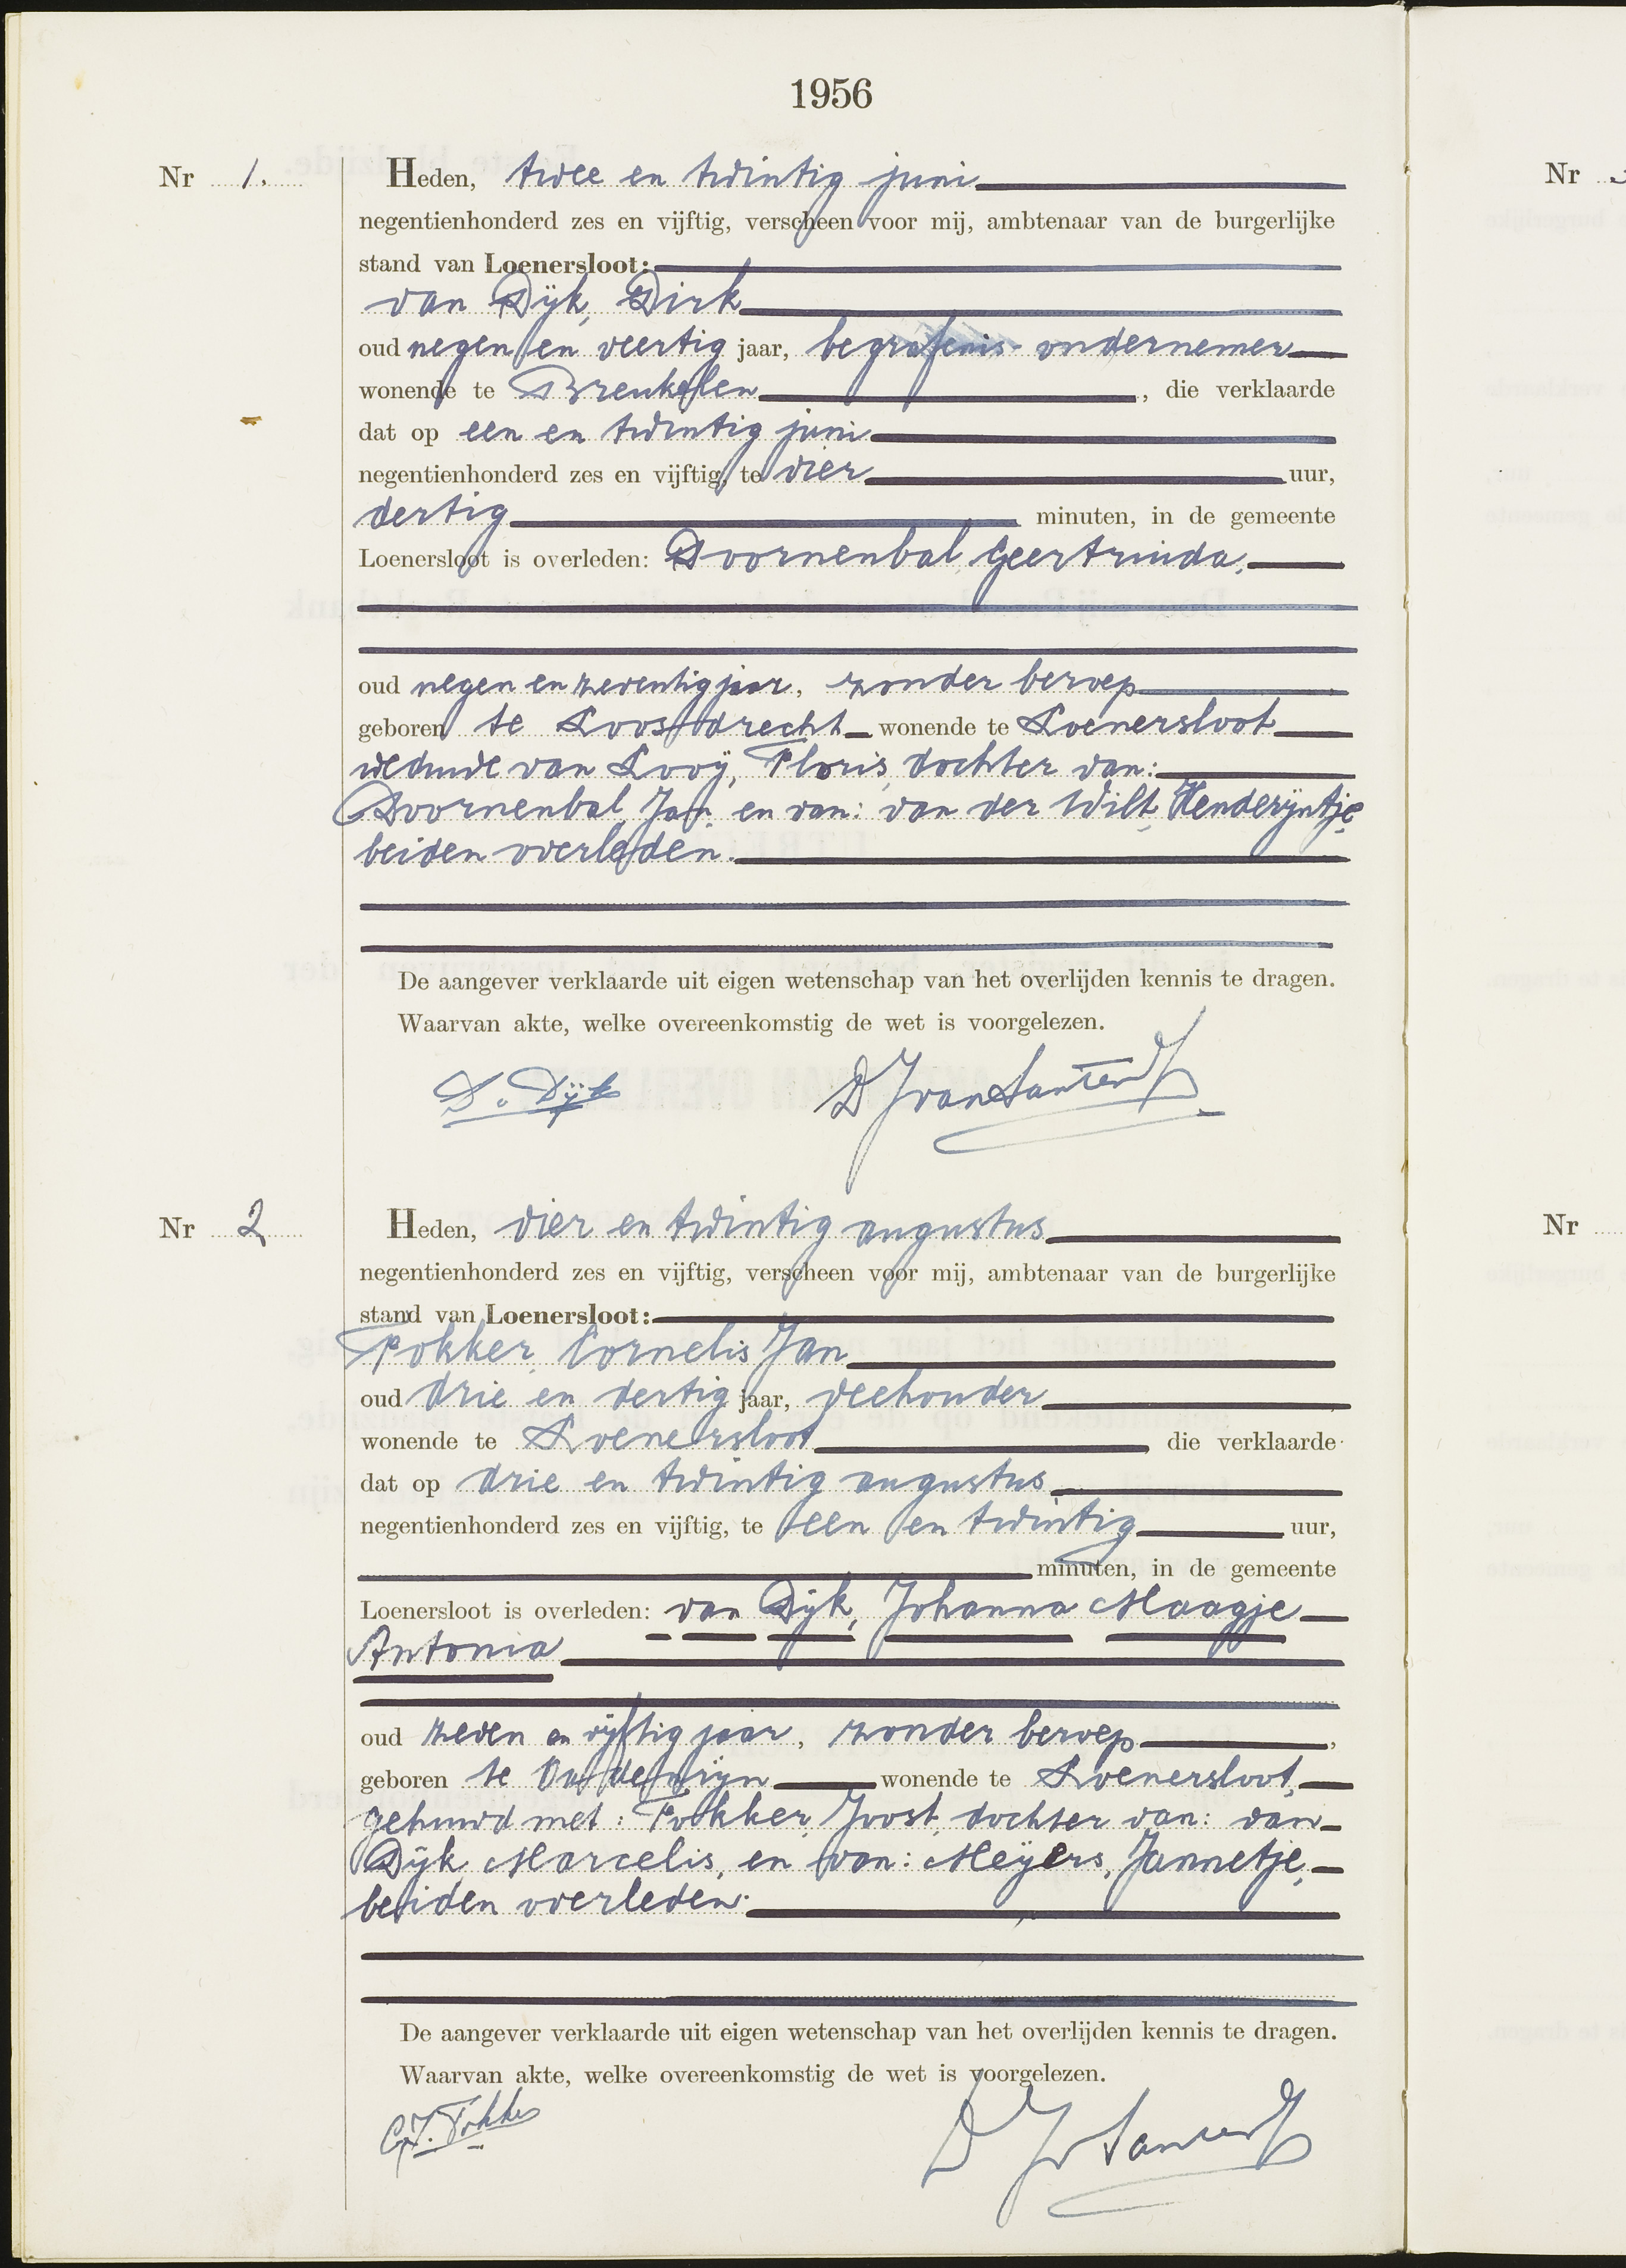 1956
Nr 1.
Heden, twee en twintig juni
negentienhonderd zes en vijftig, verscheen voor mij, ambtenaar van de burgerlijke
stand van Loenersloot:
van Dijk, Dirk
oud negen en veertig jaar, begrafenis-ondernemer
wonende te Breukelen, die verklaarde
dat op een en twintig juni
negentienhonderd zes en vijftig, te vier uur,
dertig minuten, in de gemeente
Loenersloot is overleden: Doornenbal, Geertruida,
oud negen en zeventig jaar, zonder beroep
geboren te Loosdrecht wonende te Loenersloot
weduwe van Looij, Floris, dochter van:
Doornenbal, Jan, en van: van der Wilt, Henderijntje,
beiden overleden.
De aangever verklaarde uit eigen wetenschap van het overlijden kennis te dragen.
Waarvan akte, welke overeenkomstig de wet is voorgelezen.
D. v. Dijk
D J van
Nr 2
Heden, vier en twintig augustus
negentienhonderd zes en vijftig, verscheen voor mij, ambtenaar van de burgerlijke
stand van Loenersloot:
Fokker, Cornelis Jan
oud drie en dertig jaar, veehouder
wonende te Loenersloot die verklaarde
dat op drie en twintig augustus
negentienhonderd zes en vijftig, te een en twintig uur,
minuten, in de gemeente
Loenersloot is overleden: van Dijk, Johanna Maagje
Antonia
oud zeven en vijftig jaar, zonder beroep,
geboren te Oudenrijn wonende te Loenersloot,
gehuwd met: Fokker, Joost, dochter van: van
Dijk, Marcelis, en van: Meijers, Jannetje,
beiden overleden.
De aangever verklaarde uit eigen wetenschap van het overlijden kennis te dragen.
Waarvan akte, welke overeenkomstig de wet is voorgelezen.
C.J. Fokker
D J v
Nr
Nr